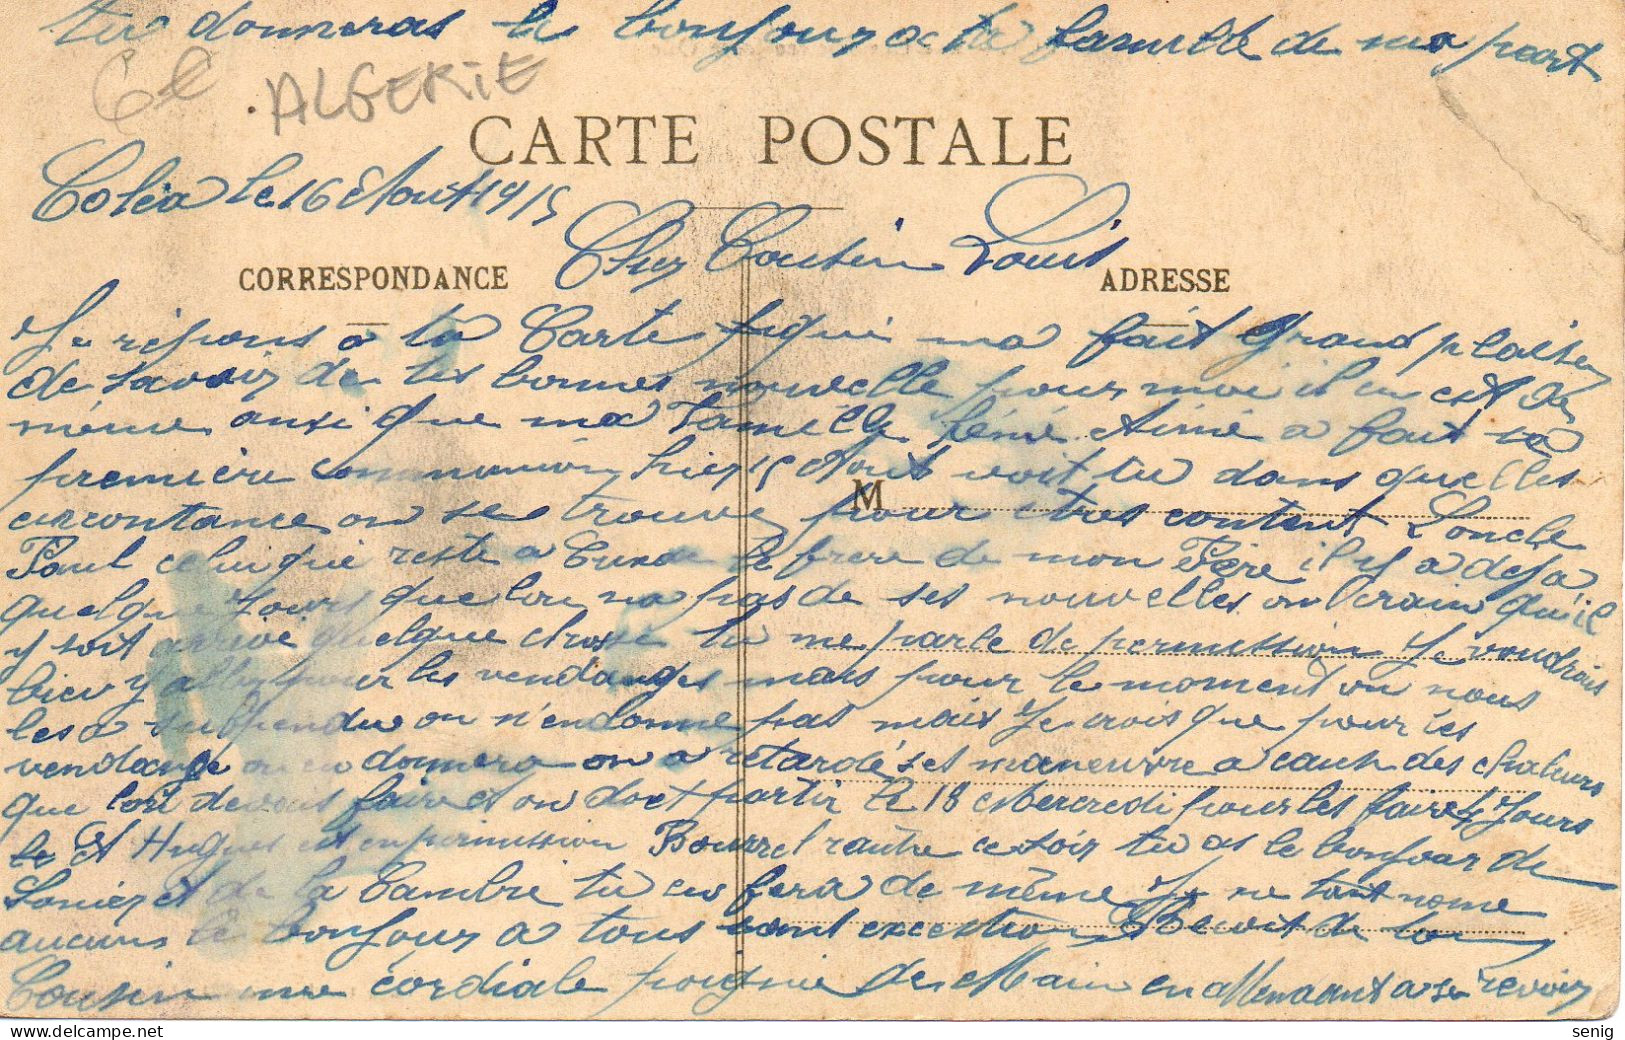 tu donneras le bonjour a ta famille de ma part
ALGERIE
CARTE POSTALE
Coléa le 16 Aout 1915
Cher Cousin Louis
CORRESPONDANCE
ADRESSE
Je répons a ta Carte qui ma fait Grand plaisir
de savoir de tes bonnes nouvelle pour moi il en est de
même ausi que ma famille Aimé a fait sa
première communion hier 15 Aout voit tu dans quelles
circontance on se trouve pour etres content Loncle
M
Paul celui qui reste a le frere de mon Père il y a deja
quelque jours que lon na pas de ses nouvelles on craint qu'il
y soit arrivé quelque chosse tu me parle de permission Je voudrais
bien y aller pour les vendanges mais pour le moment on nous
les a suspendu on n'en donne pas mais Je crois que pour les
vendange on en donnera on a retardé les maneuvre a cause des chaleurs
que lon devais faire et on doet partir le 18 Mercredi pour les faire 4 Jours
et Hugues est en permission Bourrel rautre ce soir tu as le bonjour de
et de la Cambre tu en fera de même Je ne tant nome
aucuns le bonjour a tous sans excection Recoit de ton
Cousin une cordiale poignie de Main en Attendant a se revoir
senig